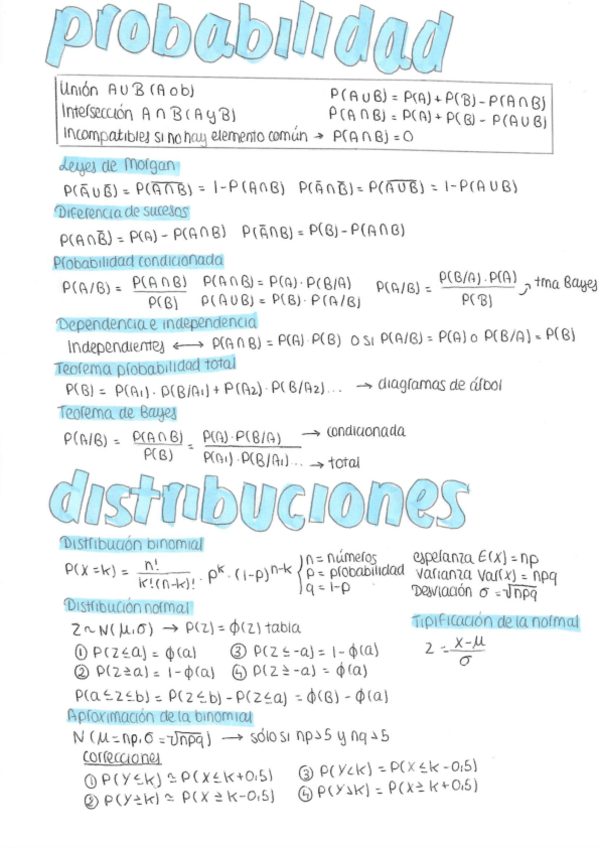 probabilidad
Unión A∪B (A o b) P(A∪B) = P(A) + P(B) - P(A∩B)
Intersección A∩B (A y B) P(A∩B) = P(A) + P(B) - P(A∪B)
Incompatibles si no hay elemento común → P(A∩B) = 0
Leyes de Morgan
P(Ā∪B̄) = P(A̅∩̅B̅) = 1-P(A∩B) P(Ā∩B̄) = P(A̅∪̅B̅) = 1-P(A∪B)
Diferencia de sucesos
P(A∩B̄) = P(A) - P(A∩B) P(Ā∩B) = P(B) - P(A∩B)
Probabilidad condicionada
P(A/B) = P(A∩B)/P(B) P(A∩B) = P(A) · P(B/A) P(A/B) = P(B/A) · P(A)/P(B) → tma Bayes
P(A∪B) = P(B) · P(A/B)
Dependencia e independencia
Independientes ⟷ P(A∩B) = P(A) · P(B) o si P(A/B) = P(A) o P(B/A) = P(B)
Teorema probabilidad total
P(B) = P(A₁) · P(B/A₁) + P(A₂) · P(B/A₂)... → diagramas de árbol
Teorema de Bayes
P(A/B) = P(A∩B)/P(B) = P(A) · P(B/A) → condicionada
P(A₁) · P(B/A₁)... → total
distribuciones
Distribución binomial
P(X=k) = n!/k!(n-k)! · pᵏ · (1-p)ⁿ⁻ᵏ
n = números
p = probabilidad
q = 1-p
esperanza E(x) = np
varianza Var(x) = npq
Desviación σ = √npq
Distribución normal
Z ~ N(μ,σ) → P(z) = ϕ(z) tabla
① P(Z≤a) = ϕ(a) ③ P(Z≤-a) = 1-ϕ(a)
② P(Z≥a) = 1-ϕ(a) ④ P(Z≥-a) = ϕ(a)
P(a≤z≤b) = P(z≤b) - P(z≤a) = ϕ(B) - ϕ(a)
Tipificación de la normal
Z = x-μ/σ
Aproximación de la binomial
N(μ=np, σ=√npq) → sólo si np>5 y nq>5
correcciones
① P(Y≤k) ≃ P(X≤k+0,5) ③ P(Y<k) = P(X≤k-0,5)
② P(Y≥k) ≃ P(X≥k-0,5) ④ P(Y>k) = P(X≥k+0,5)